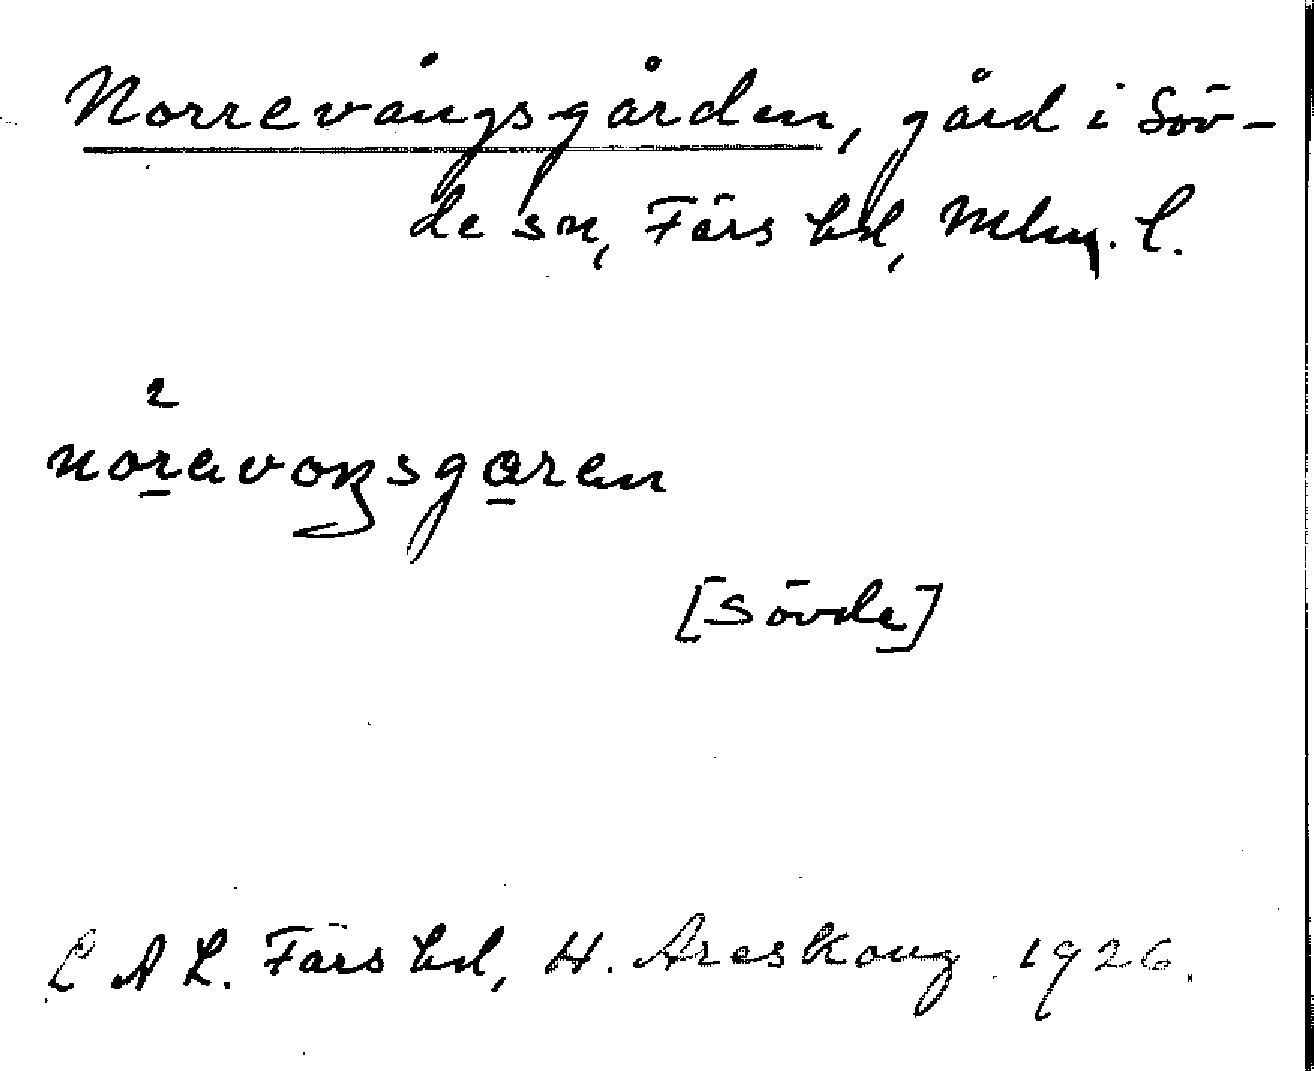 Norrevångsgården, gård i Söv-
de sn, Färs hd, Mlm. l.
2
noravoŋsgaren
[Sövde]
L A L. Färs hd, H. Areskoug 1926.